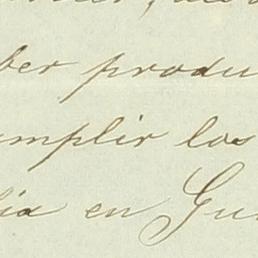 ber produ
umplir los
lia en Gu